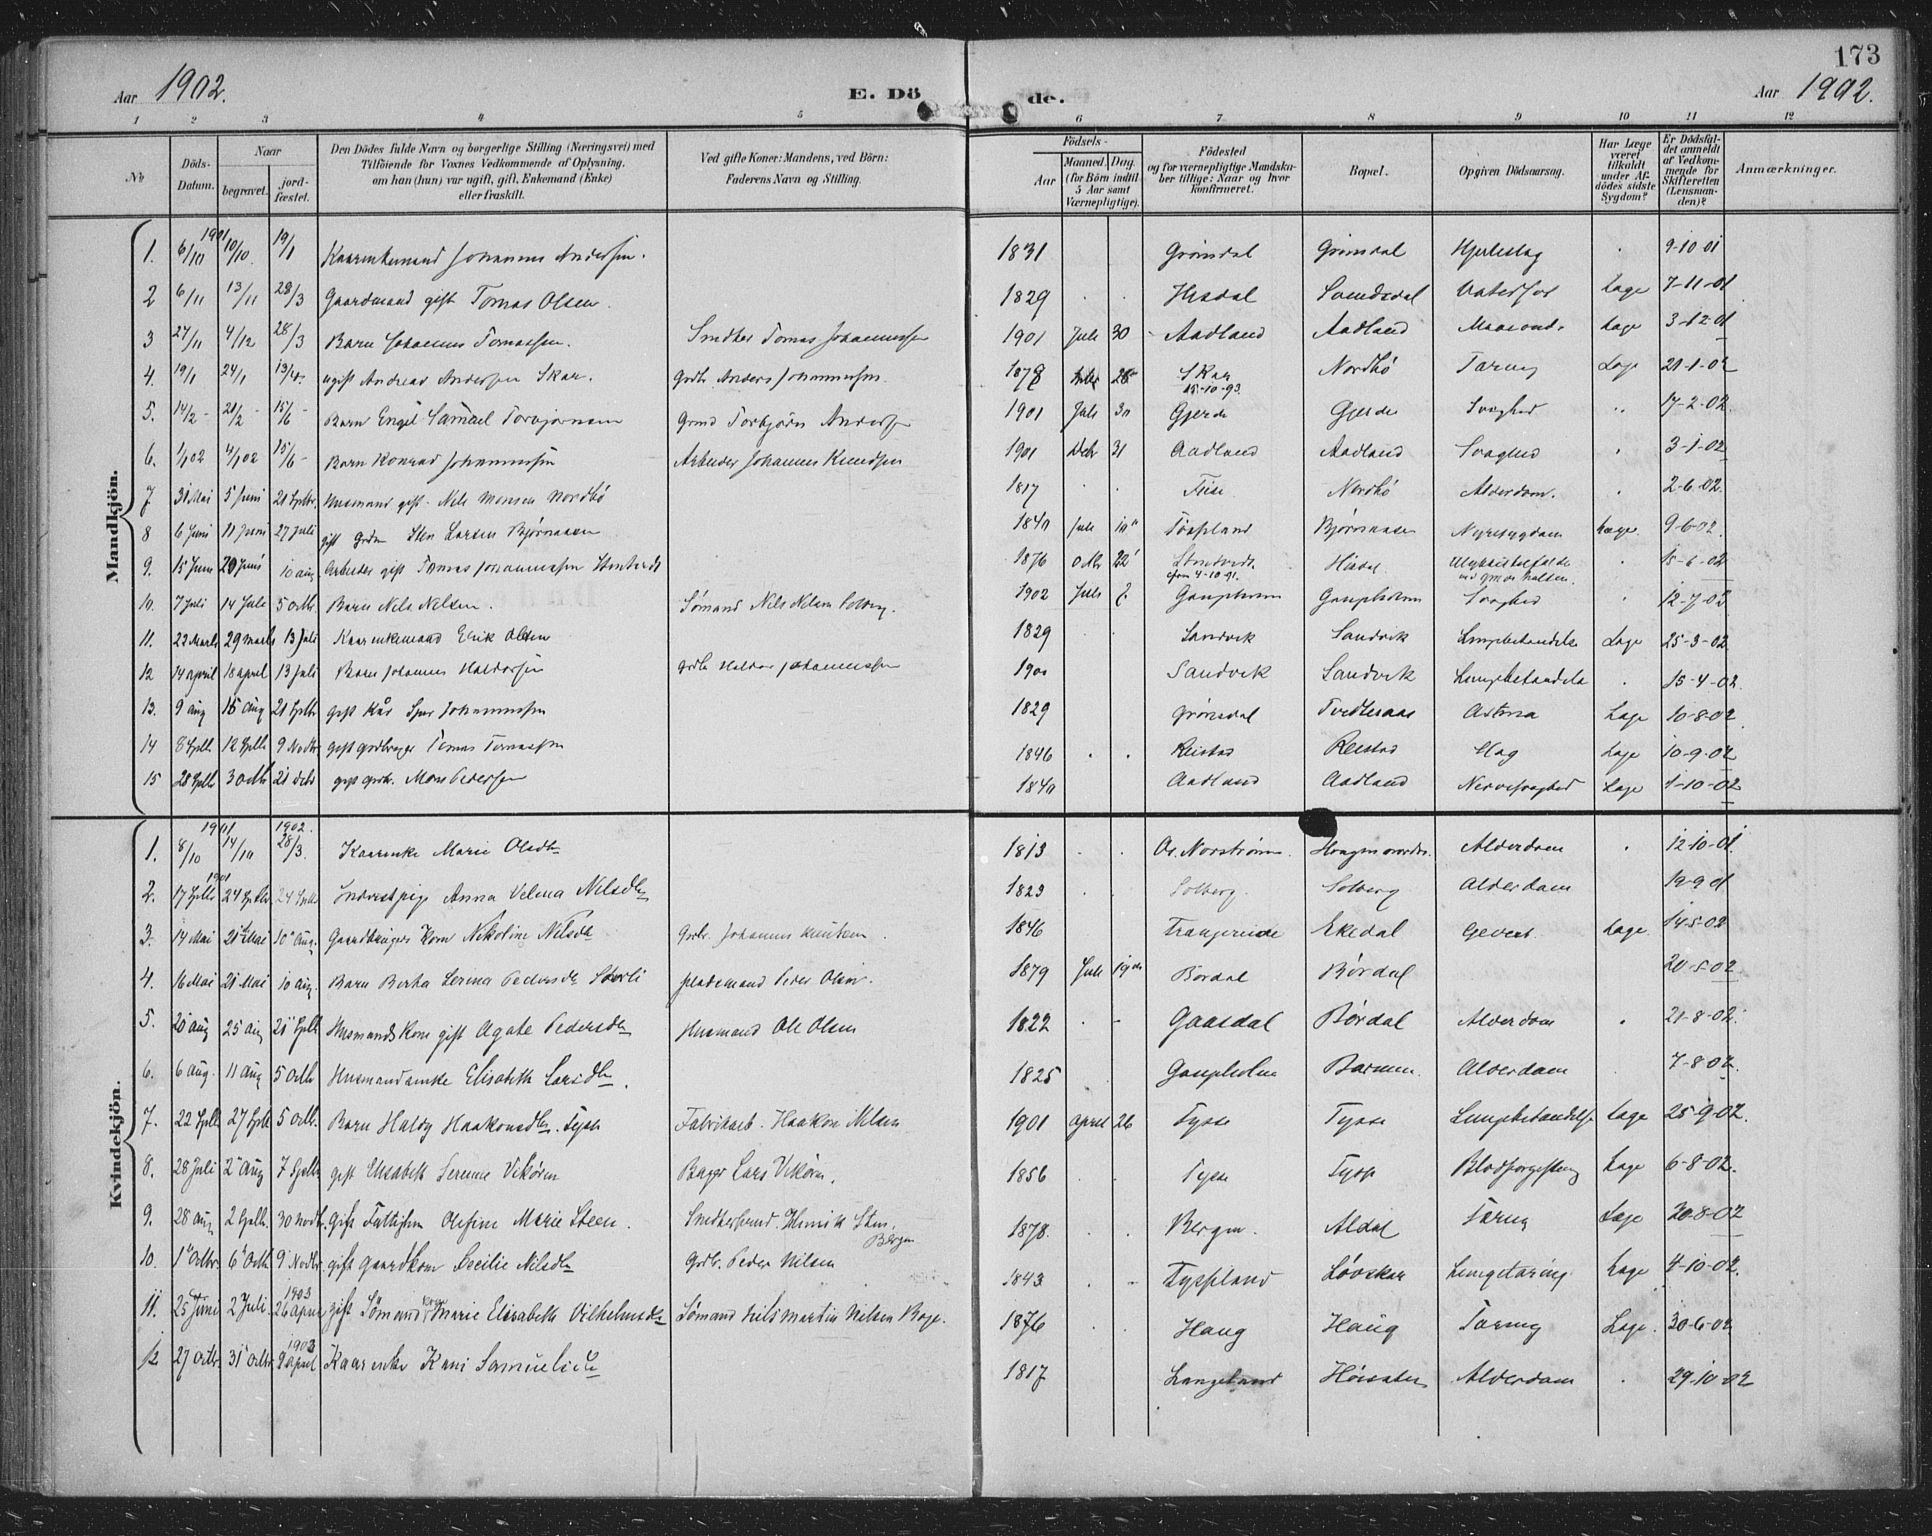 173
Aar 1902. E. Dö de. Aar 1902.
1 2 3 4 5 6 7 8 9 10 11 12
No
Döds-Datum.
Naar
begravet.
jord-fæstet.
Den Dödes fulde Navn og borgerlige Stilling (Næringsvei) med
Tilföiende for Voxnes Vedkommende af Oplysning,
om han (hun) var ugift, gift, Enkemand (Enke)
eller fraskilt.
Ved gifte Koner: Mandens, ved Börn:
Faderens Navn og Stilling.
Födsels-
Aar
Maaned. Dag.
(for Börn indtil
5 Aar samt
Værnepligtige).
Födested
og for værnepligtige Mandska-
ber tillige: Naar og hvor
konfirmeret.
Bopæl.
Opgiven Dödsaarsag.
Har Læge
været
tilkaldt
under Af-
dödes sidste
Sygdom?
Er Dödsfal-
det anmeldt
af Vedkom-
mende for
Skifteretten
(Lensman-
den)?
Anmærkninger.
Mandkjön.
1901
1. 6/10 10/10. 19/1 Kaarenkemand Johannes Andersen. 1831 Grønsdal Grønsdal Hjerteslag 9-10-01
2 6/11 13/11 28/3 Gaardmand gift Tomas Olsen. 1829 Hisdal Lage 7-11-01
3 27/11 4/12 28/3 Barn Johannes Tomassen. Tomas Johannessen 1901 Juli 30 Aadland Aadland Lage 3-12-01
4. 19/1 24/1 13/4 ugift Andreas Andersen Skar. Grdbr. Anders Johannessen 1878 28 Skar Nordbö Tæring Lage 21-1-02
15-10-93.
5. 14/2 21/2 15/6 Barn Engel Samuel Torbjørnsen Torbjörn Andersen 1901 Juli 30 Gjerde Gjerde Svaghed 17-2-02
6. 1/102 4/102 15/6 Barn Konrad Johannessen Arbeider Johannes Knudsen 1901 Debr 31 Aadland Aadland Svaghed 3-1-02
7 31 Mai 5 Juni 21 Septbr. Husmand gift Nils Monsen Nordbö 1817 Nordbö Alderdom. 2-6-02.
8 6 Juni 11 Juni 27 Juli gift Sten Larsen Bjørnaasen 1840 Juli Tössland Bjørnaasen Nyresygdom Læge 9-6-02.
9. 15 Juni 20 Juni 10 aug. Arbeider gift Tomas Johannessen 1876 Octbr 22 Hisdal 15-6-02
4-10-91.
10. 7 Juli 14 Juli 5 Octbr Barn Nils Nilsen. Sømand Nils Nilsen Solberg. 1902 Juli 7 Gaupholm Gaupholm Svaghed 12-7-02
11. 22 Marts 29 Marts 13 Juli Kaarenkemand Erik Olsen 1829 Sandvik Sandvik Lungebetændelse Læge 25-3-02
12 14 april 18 april 13 Juli Barn Johannes Haldorsen Grdbr Haldor Johannessen 1900 Sandvik Sandvik Lungebetændelse 15-4-02.
13. 9 aug 15 Aug 21 Septbr gift Kår Sjur Johannessen 1829 Grønsdal Astma Læge 10-8-02
14 8 Septbr 12 Septbr 9 Novbr gift gardbruger Tomas Tomassen 1846 Reistad Reistad Slag Læge 10-9-02
15 28 Septbr 3 Octbr 21 Debr gift grdbr. Mons Pedersen 1840 Aadland Aadland Nervesvaghed Læge 1-10-02
Kvindekjön.
1901 1902.
1. 8/10 14/10 28/3. Kaarenke Marie Olsdtr 1813 Os. Alderdom 12-10-01.
1901
2. 17 Septbr 24 Septbr 24 Septbr Anna Velma Nilsdtr 1823 Solberg Solberg Alderdom 19-9-01
3. 14 Mai 21 Mai 10 Aug. Gaardbrugers Kone Nikoline Nilsdtr Grdbr. Johannes Knutsen 1846 Ekedal Læge 14-5-02
4. 16 Mai 21 Mai 10 aug. Barn Berta Serina Pedersdtr Peder Olsen. 1879 Juli Børdal Børdal 20-5-02
5. 20 aug 25 aug 21 Septbr Husmands Kone gift Agate Pedersdtr Husmand Ole Olsen 1822 Gaasdal Børdal Alderdom 21-8-02.
6. 6 aug. 11 aug 5 Octbr Husmandsenke Elisabeth Larsdtr. 1825 Gaupholm Alderdom 7-8-02.
7. 22 Septbr 27 Septbr 5 Octbr. Barn Haldis Haakonsdtr. Tysse Fabrikarb. Haakon Nilsen 1901 april 26 Tysse Tysse Lungebetændelse Læge 25-9-02.
8. 28 Juli 2 aug 7 Septbr gift Elisabeth Serine Vikören Lars Vikören. 1856 Tysse Tysse Blodforgiftning Læge 6-8-02.
9. 28 aug 2 Septbr. 30 Novbr. gift Olefine Marie Steen. Henrik Sten, 1878 Bergen. Aldal Tæring Læge 20-8-02
Bergen
10. 1 Octbr. 6 Octbr 9 Novbr. gift gaardkone Cecilie Nilsdtr Grdbr. Peder Nilsen 1843 Tyssland Løvskar Lungetæring Læge 4-10-02.
1903
11. 25 Juni 2 Juli 26 april gift Sømands Kone Marie Elisabeth Vilhelmsdtr Sømand Nils Martin Nilsen Boge. 1876 Haug Haug Tæring Læge. 30-6-02
1903
12 27 Octbr. 31 Octbr. 9 april Kaarenke Kari Samuelsdtr 1817 Langeland Alderdom 29-10-02